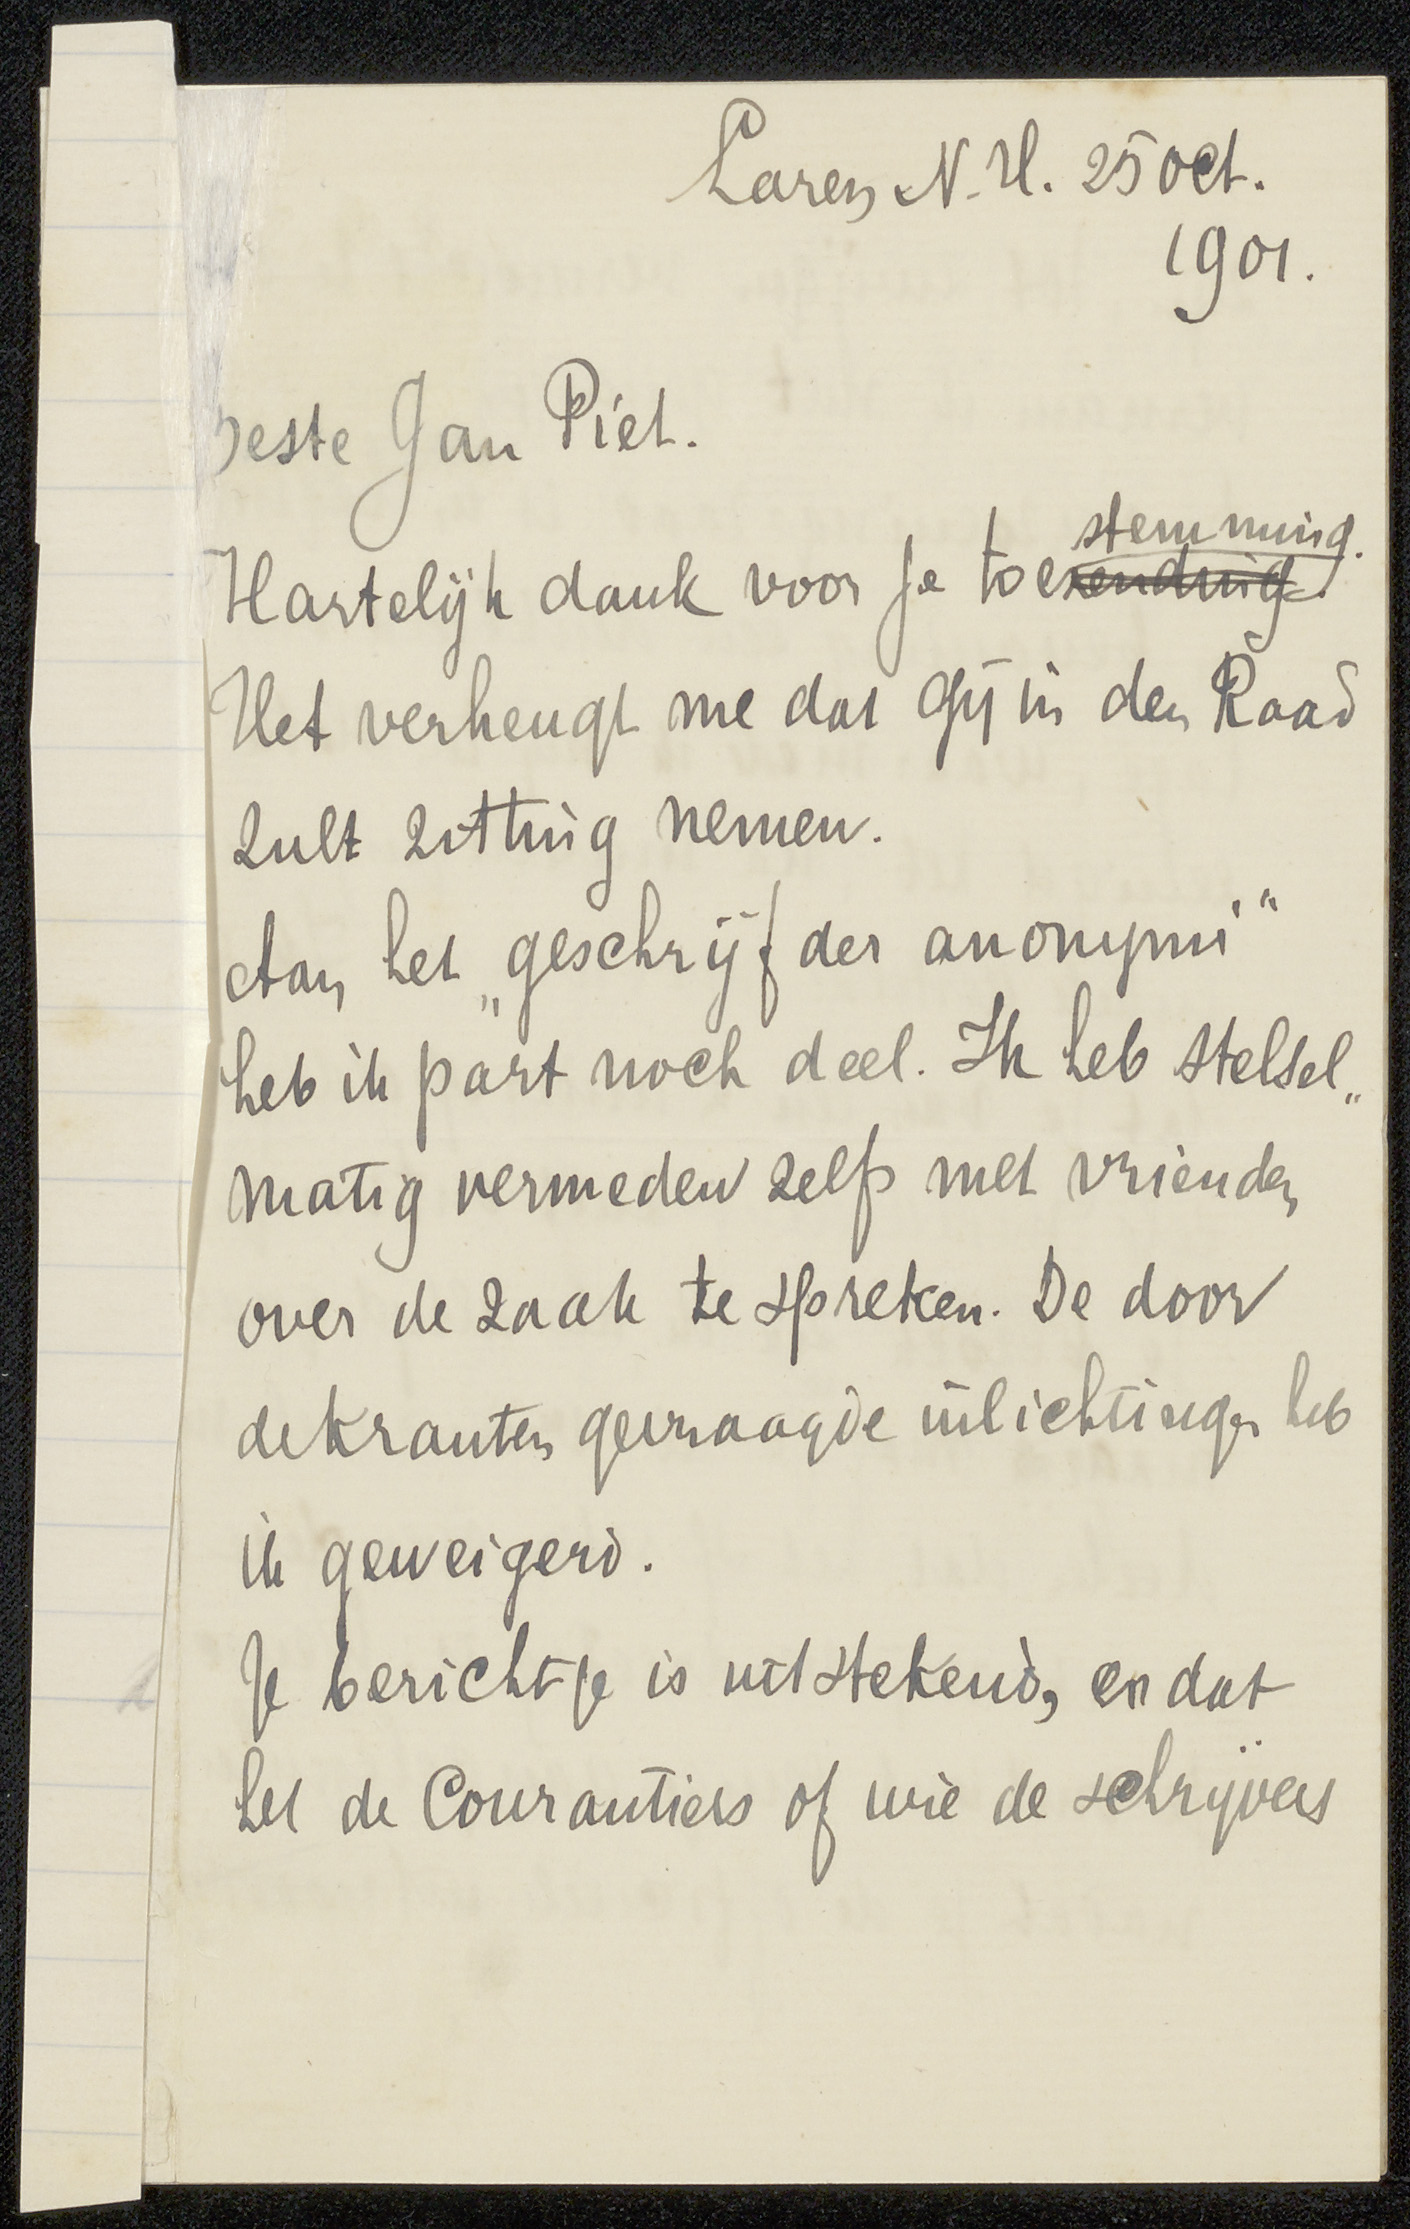 Laren N.H. 25 oct.
1901.
beste Jan Piet.
stemming.
Hartelijk dank voor je toezending.
Het verheugt me dat Gij in den Raad
zult zitting nemen.
Aan het „geschrijf der anonymi“
heb ik part noch deel. Ik heb stelsel„
matig vermeden zelfs met vrienden
over de zaak te spreken. De door
de kranten gevraagde inlichtingen heb
ik geweigerd.
Je berichtje is uitstekend, en dat
het de Courantiers of wie de schrijvers